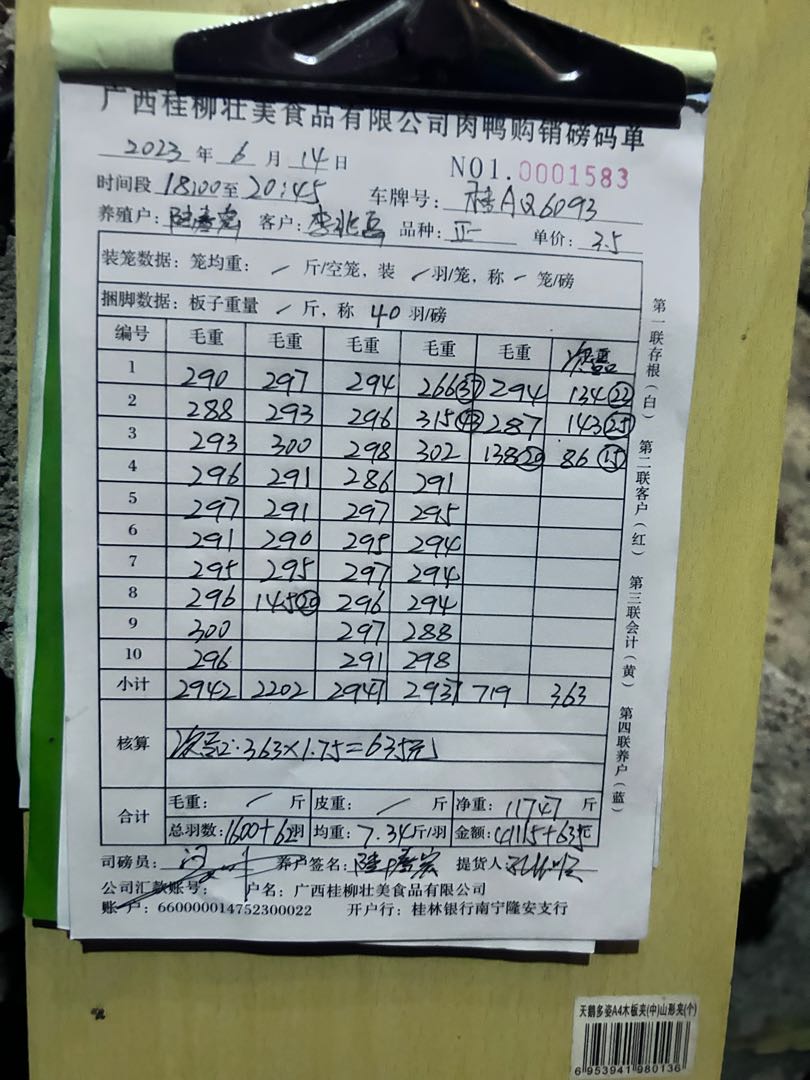 广西桂柳壮美食品有限公司肉鸭购销磅码单
2023 年 6 月 14 日 NO1.0001583
时间段 18:00至 20:45 车牌号: 桂AQ6093
养殖户: 客户: 品种: 正一 单价: 3.5
装笼数据: 笼均重: / 斤/空笼, 装 / 羽/笼, 称 / 笼/磅
捆脚数据: 板子重量 / 斤, 称 40 羽/磅
编号 毛重 毛重 毛重 毛重 毛重 次品
1 290 297 294 266 37 294 134 22
2 288 293 296 315 43 287 143 25
3 293 300 298 302 138 20 86 15
4 296 291 286 291
5 297 291 297 295
6 291 290 295 294
7 295 295 297 294
8 296 145 20 296 294
9 300 297 288
10 296 291 298
小计 2942 2202 2947 2937 719 363
核算 次品: 363×1.75=635元
合计 毛重: / 斤 皮重: / 斤 净重: 11747 斤
总羽数: 1600+62羽 均重: 7.34斤/羽 金额: 41115+635元
司磅员: 养户签名: 提货人:
公司汇款账号: 户名: 广西桂柳壮美食品有限公司
账 户: 660000014752300022 开户行: 桂林银行南宁隆安支行
第一联存根(白) 第二联客户(红) 第三联会计(黄) 第四联养户(蓝)
天鹅多姿A4木板夹(中)山形夹(个)
6 953941 980136